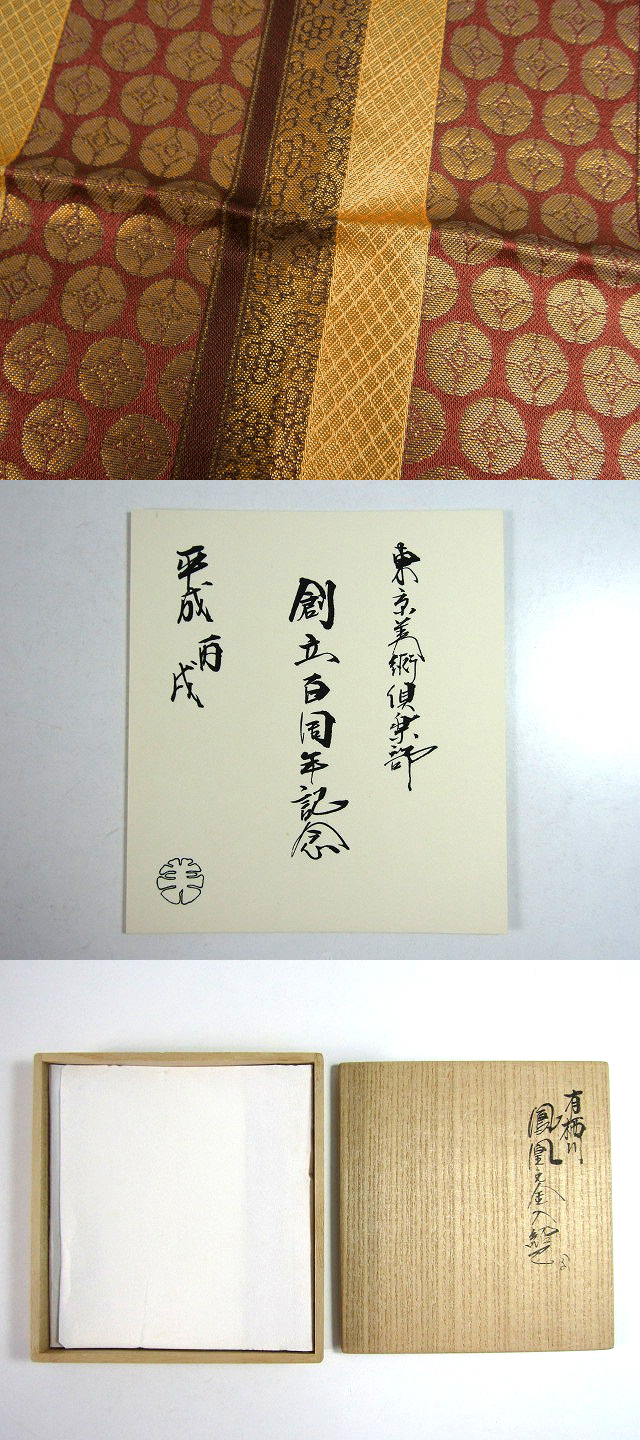 東京美術倶楽部
創立百周年記念
平成丙戌
有栖川
鳳凰文金入